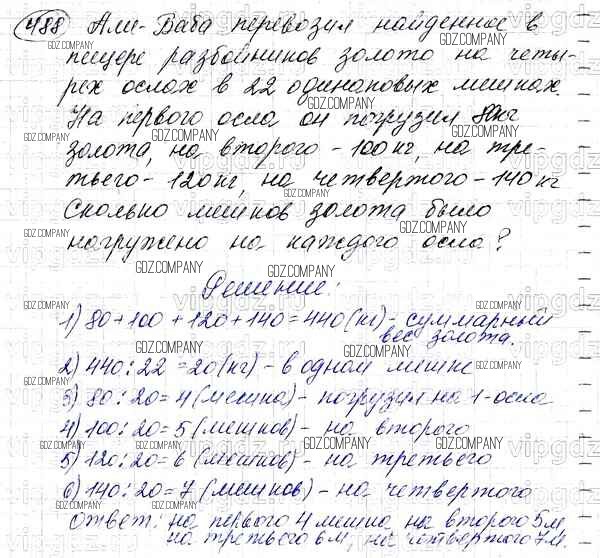 488 Али-Баба перевозил найденное в
пещере разбойников золото на четы-
рех ослах в 22 одинаковых мешках.
На первого осла он погрузил 80кг
золота, на второго - 100 кг, на тре-
тьего - 120 кг, на четвертого - 140 кг
Сколько мешков золота было
нагружено на каждого осла?
Решение:
1) 80 + 100 + 120 + 140 = 440 (кг) - суммарный
вес золота.
2) 440 : 22 = 20 (кг) - в одном мешке
3) 80 : 20 = 4 (мешка) - погрузил на 1-осла
4) 100 : 20 = 5 (мешков) - на второго
5) 120 : 20 = 6 (мешков) - на третьего
6) 140 : 20 = 7 (мешков) - на четвертого
Ответ: на первого 4 мешка, на второго 5 м,
на третьего 6 м, на четвертого 7 м.